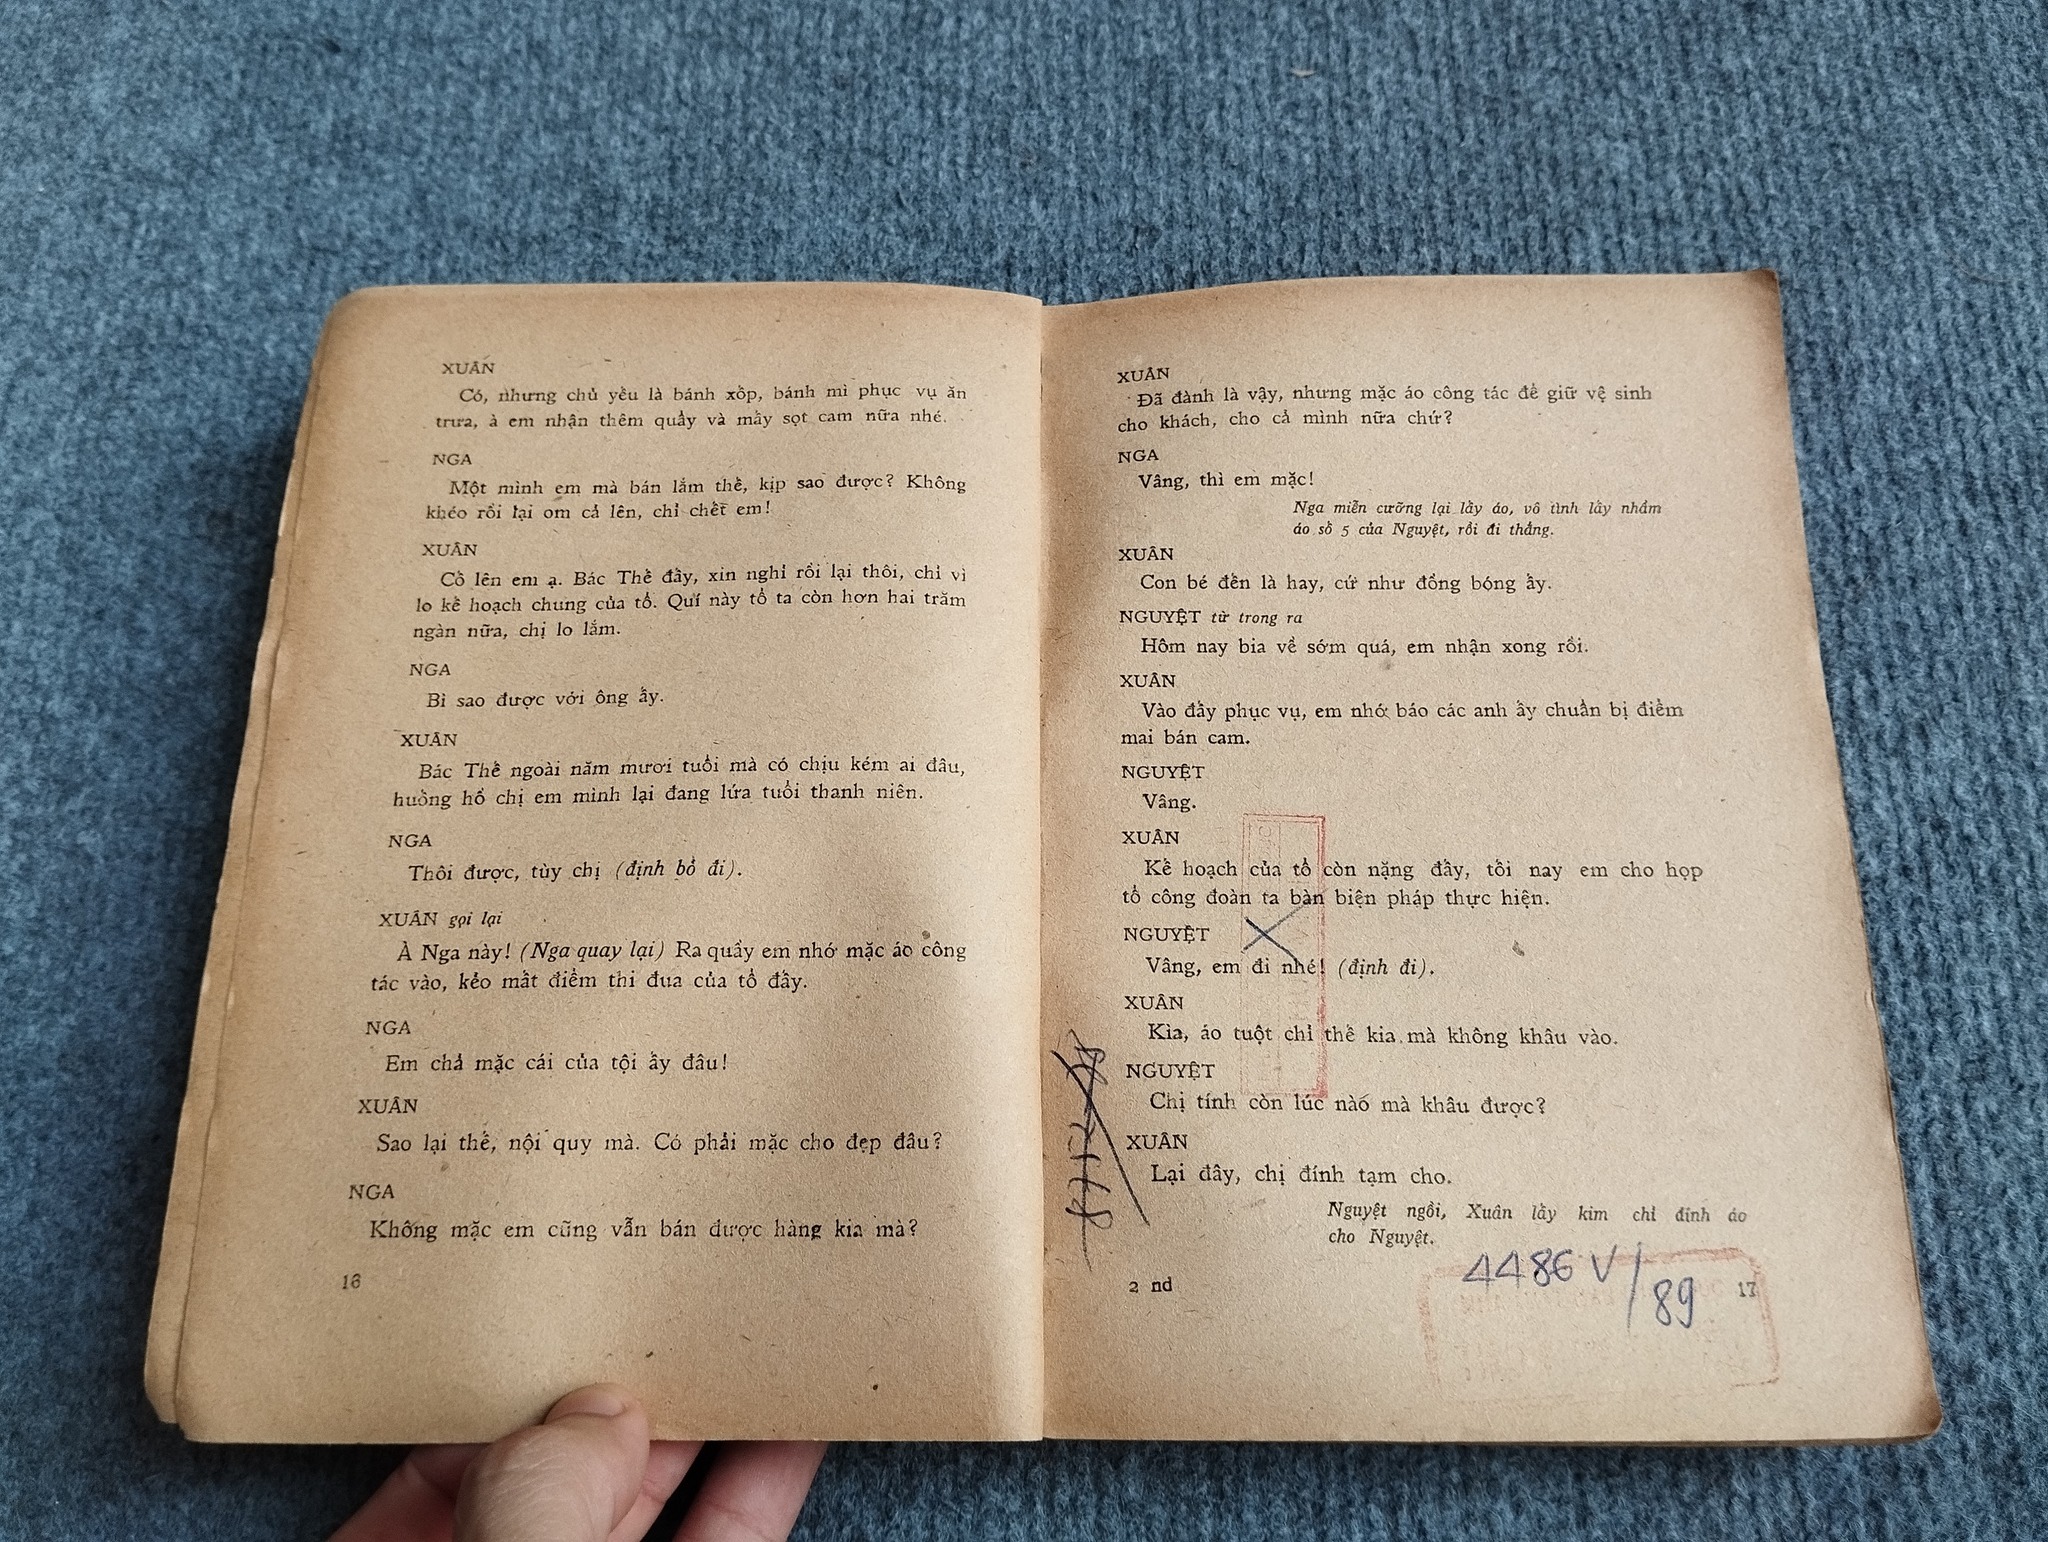 XUÂN
Có, nhưng chủ yếu là bánh xốp, bánh mì phục vụ ăn
trưa, à em nhận thêm quẩy và mấy sọt cam nữa nhé.
NGA
Một mình em mà bán lắm thế, kịp sao được? Không
khéo rồi lại om cả lên, chỉ chết em!
XUÂN
Cố lên em ạ. Bác Thế đấy, xin nghỉ rồi lại thôi, chỉ vì
lo kế hoạch chung của tổ. Quí này tổ ta còn hơn hai trăm
ngàn nữa, chị lo lắm.
NGA
Bì sao được với ông ấy.
XUÂN
Bác Thế ngoài năm mươi tuổi mà có chịu kém ai đâu,
huống hồ chị em mình lại đang lứa tuổi thanh niên.
NGA
Thôi được, tùy chị (định bỏ đi).
XUÂN gọi lại
À Nga này! (Nga quay lại) Ra quầy em nhớ mặc áo công
tác vào, kẻo mất điểm thi đua của tổ đấy.
NGA
Em chả mặc cái của tội ấy đâu!
XUÂN
Sao lại thế, nội quy mà. Có phải mặc cho đẹp đâu?
NGA
Không mặc em cũng vẫn bán được hàng kia mà?
16
XUÂN
Đã đành là vậy, nhưng mặc áo công tác để giữ vệ sinh
cho khách, cho cả mình nữa chứ?
NGA
Vâng, thì em mặc!
Nga miễn cưỡng lại lấy áo, vô tình lấy nhầm
áo số 5 của Nguyệt, rồi đi thẳng.
XUÂN
Con bé đến là hay, cứ như đồng bóng ấy.
NGUYỆT từ trong ra
Hôm nay bia về sớm quá, em nhận xong rồi.
XUÂN
Vào đấy phục vụ, em nhớ báo các anh ấy chuẩn bị điểm
mai bán cam.
NGUYỆT
Vâng.
XUÂN
Kế hoạch của tổ còn nặng đấy, tối nay em cho họp
tổ công đoàn ta bàn biện pháp thực hiện.
NGUYỆT
Vâng, em đi nhé! (định đi).
XUÂN
Kìa, áo tuột chỉ thế kia mà không khâu vào.
NGUYỆT
Chị tính còn lúc nào mà khâu được?
XUÂN
Lại đây, chị đính tạm cho.
Nguyệt ngồi, Xuân lấy kim chỉ đính áo
cho Nguyệt.
4486 V/89
2 nd
17